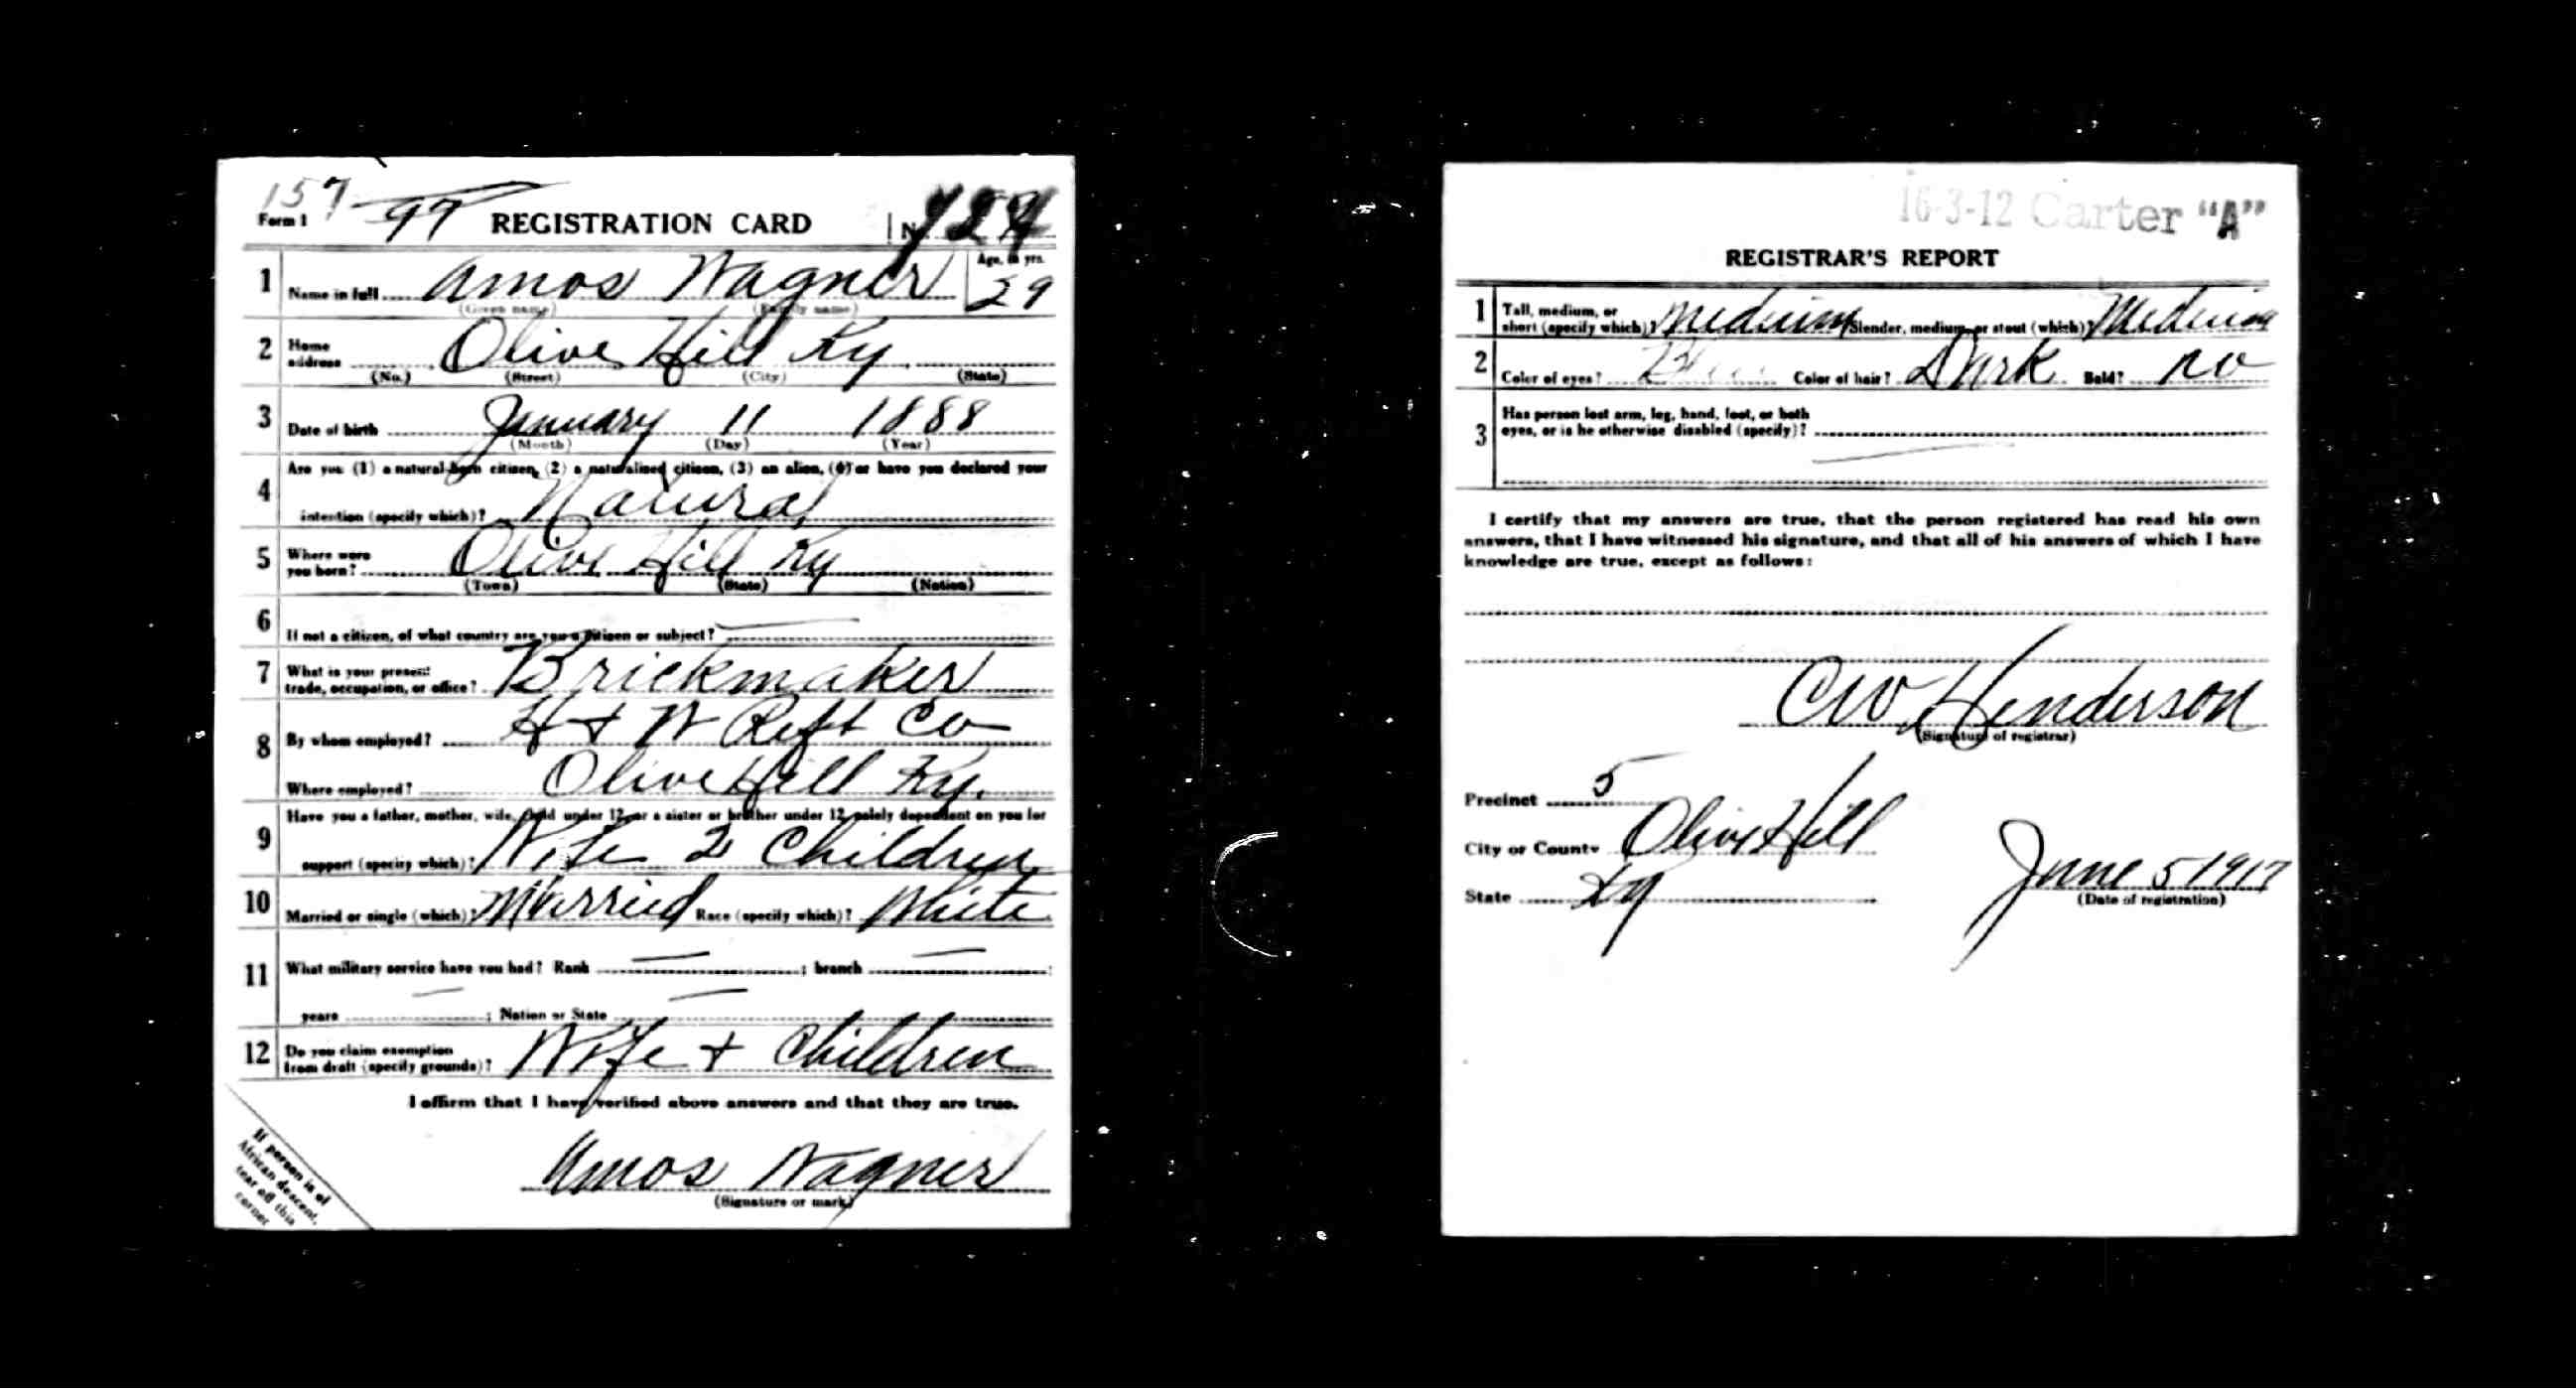 157
Form 1 97 REGISTRATION CARD
1 Name in full Amos Wagner Age, in yrs. 29
(Given name) (Family name)
2 Home address Olive Hill Ky
(No.) (Street) (City) (State)
3 Date of birth January 11 1888
(Month) (Day) (Year)
4 Are you (1) a natural-born citizen, (2) a naturalized citizen, (3) an alien, (4) or have you declared your
intention (specify which)? Natural
5 Where were you born? Olive Hill Ky
(Town) (State) (Nation)
6 If not a citizen, of what country are you a citizen or subject?
7 What is your present trade, occupation, or office? Brickmaker
8 By whom employed? H + W Reft Co
Where employed? Olive Hill Ky.
9 Have you a father, mother, wife, child under 12, or a sister or brother under 12, solely dependent on you for
support (specify which)? Wife 2 Children
10 Married or single (which)? Married Race (specify which)? White
11 What military service have you had? Rank ; branch ;
years ; Nation or State
12 Do you claim exemption from draft (specify grounds)? Wife + Children
I affirm that I have verified above answers and that they are true.
Amos Wagner
(Signature or mark)
If person is of
African descent,
tear off this
corner
16-3-12 Carter "A"
REGISTRAR'S REPORT
1 Tall, medium, or short (specify which)? Medium Slender, medium, or stout (which)? Medium
2 Color of eyes? Color of hair? Dark Bald? no
3 Has person lost arm, leg, hand, foot, or both
eyes, or is he otherwise disabled (specify)?
I certify that my answers are true, that the person registered has read his own
answers, that I have witnessed his signature, and that all of his answers of which I have
knowledge are true, except as follows:
CW. Henderson
(Signature of registrar)
Precinct 5
City or County Olive Hill
State Ky
June 5 1917
(Date of registration)